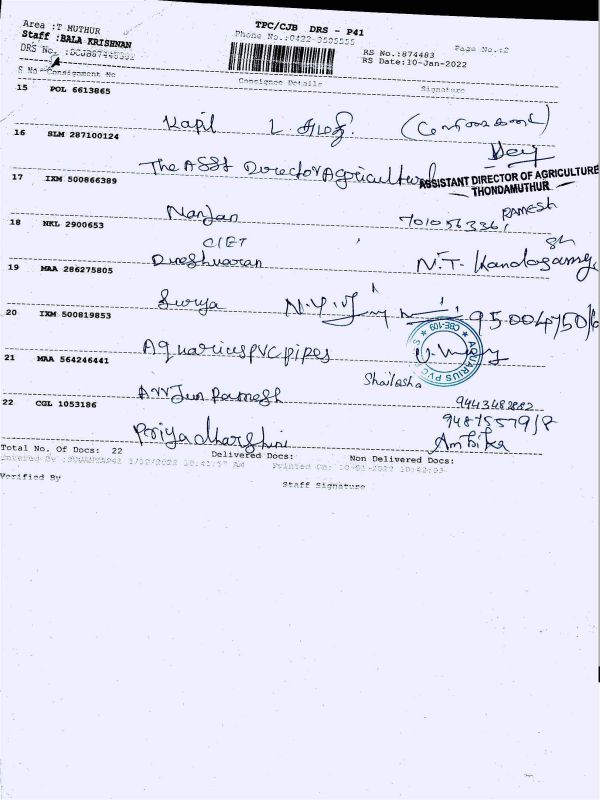 Area :T MUTHUR
TPC/CJB DRS - P41
Staff :BALA KRISHNAN
Phone No.:0422-3505555
Page No.:2
RS No.:874483
DRS No.
RS Date:10-Jan-2022
S No Consignment No
Consignee Details
Signature
15 POL 6613865
Kapil
16 SLM 287100124
The Asst Director Agricultural
ASSISTANT DIRECTOR OF AGRICULTURE
THONDAMUTHUR
17 IXM 500866389
Nanjan
7010563361
RAMESH
18 NKL 2900653
CIET
Dineshwaran
N.T. Kandasamy
19 MAA 286275805
Surya
20 IXM 500819853
Aquarius PVC pipes
AQUARIUS PVC
CBE-109
21 MAA 564246441
Shailasha
Arrjun Ramesh
9443482882
22 CGL 1053186
Priyadharshini
Ambika
Total No. Of Docs: 22
Delivered Docs:
Non Delivered Docs:
Printed On: 10-01-2022 10:42:03
Verified By
Staff Signature